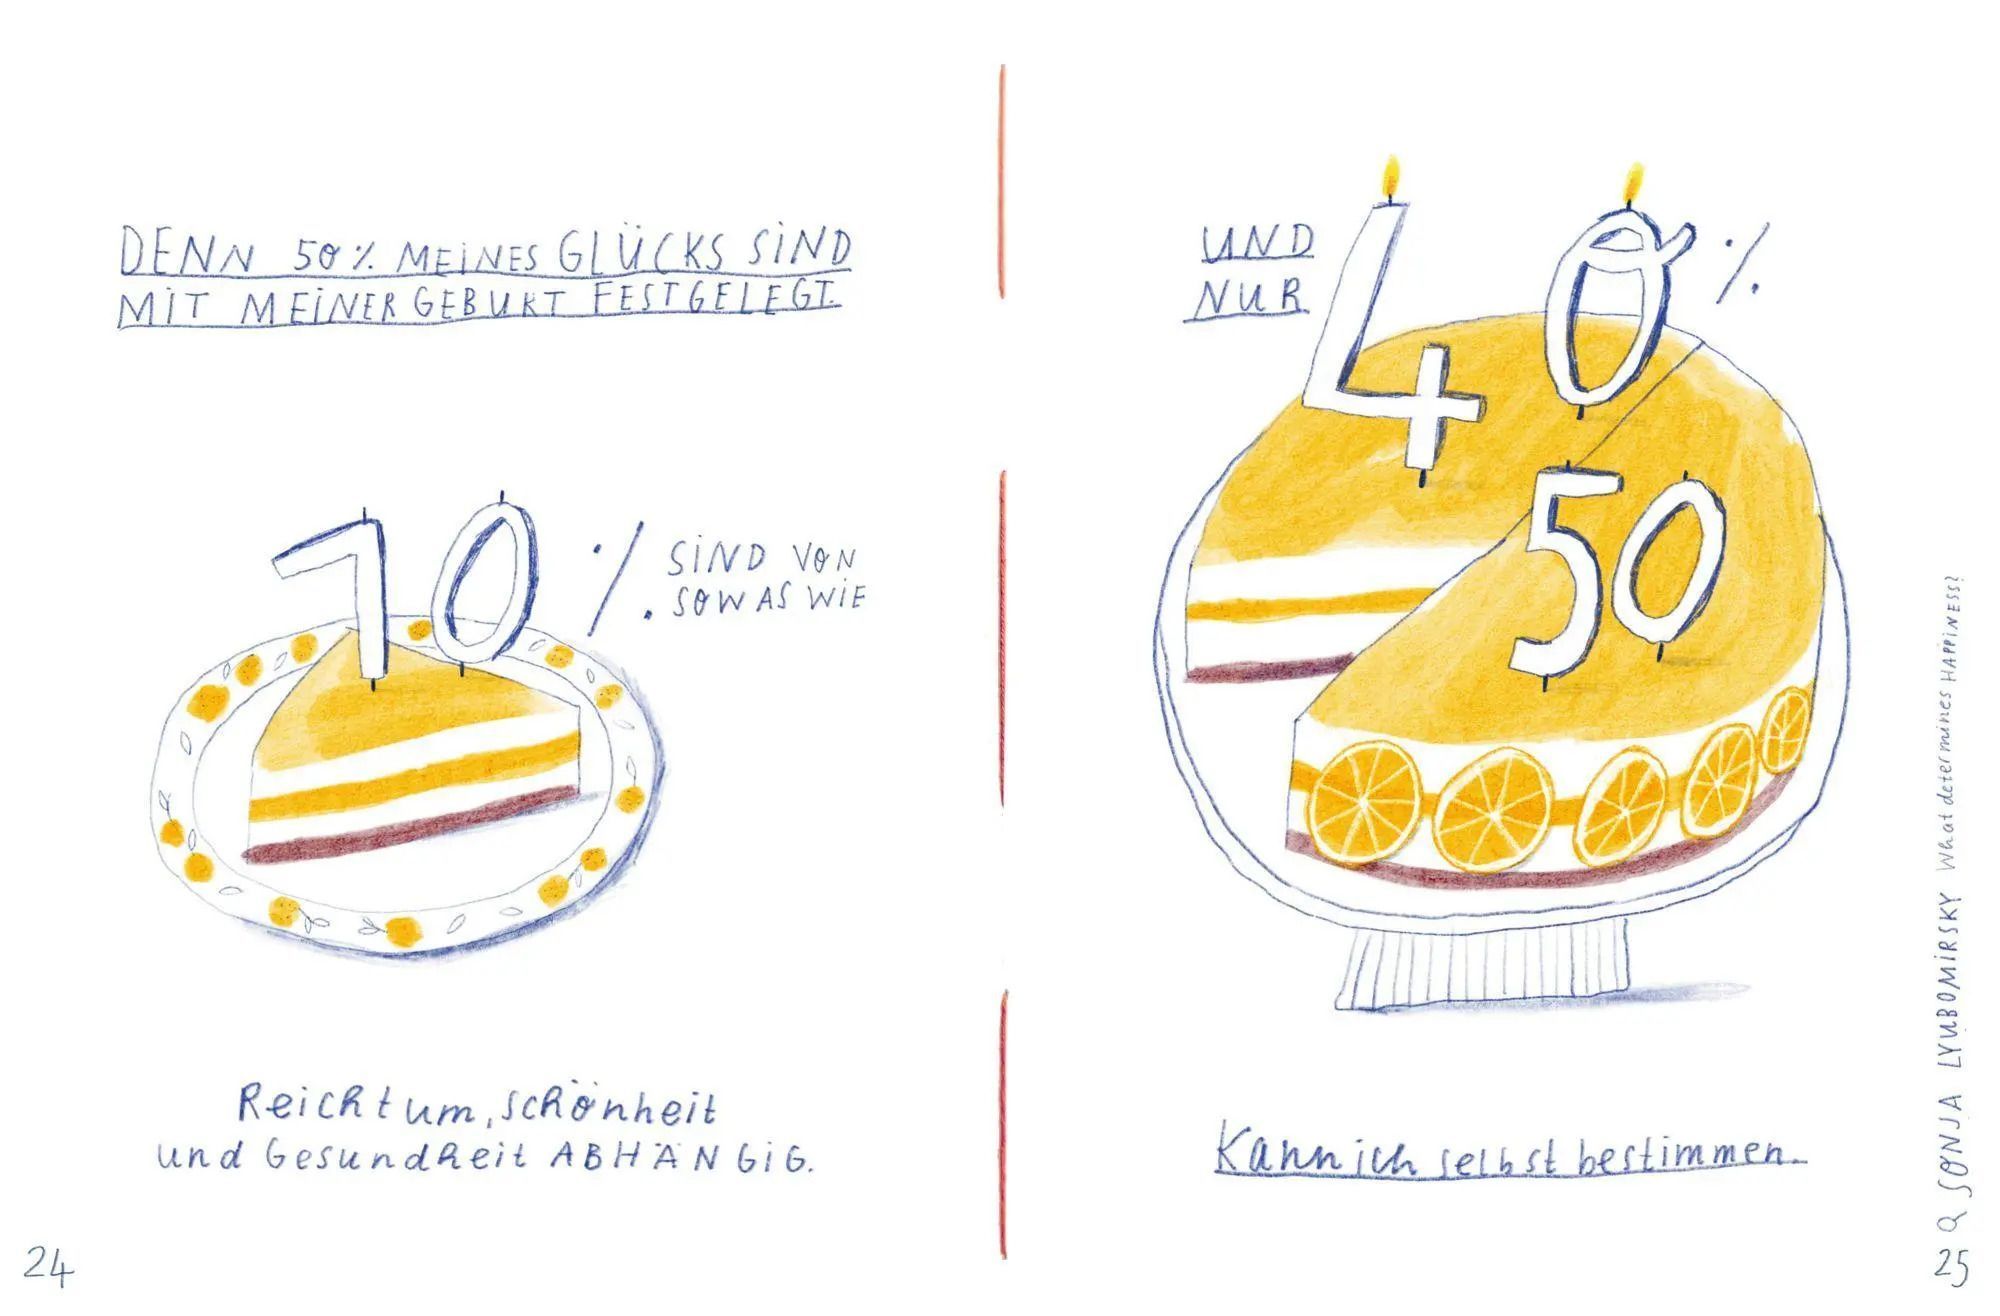 DENN 50% MEINES GLÜCKS SIND
MIT MEINER GEBURT FESTGELEGT.
10% SIND VON
SOWAS WIE
Reichtum, schönheit
und Gesundheit ABHÄNGIG.
24
UND
NUR
40%
50
Kann ich selbst bestimmen.
SONJA LYUBOMIRSKY What determines HAPPINESS?
25